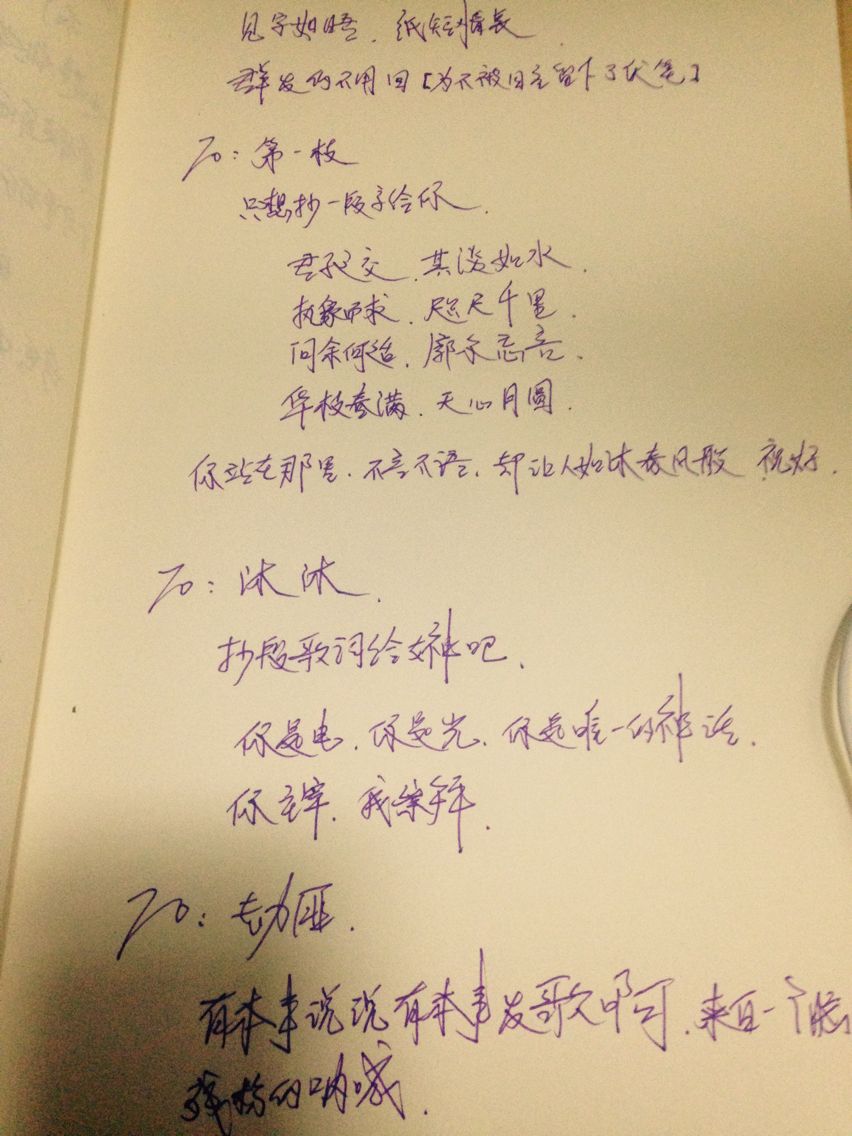 见字如晤，纸短情长
群发的不用回【为不被回主留下了伏笔】
To：第一枝
只想抄一段字给你，
君子之交，其淡如水，
执象而求，咫尺千里，
问余何适，廓尔忘言，
华枝春满，天心月圆，
你站在那里，不言不语，却让人如沐春风般 祝好，
To：沐沐，
抄段歌词给女神吧，
你是电，你是光，你是唯一的神话，
你主宰，我崇拜，
To：劫匪，
有本事说说有本事发歌啊，来自一个
的呐喊，